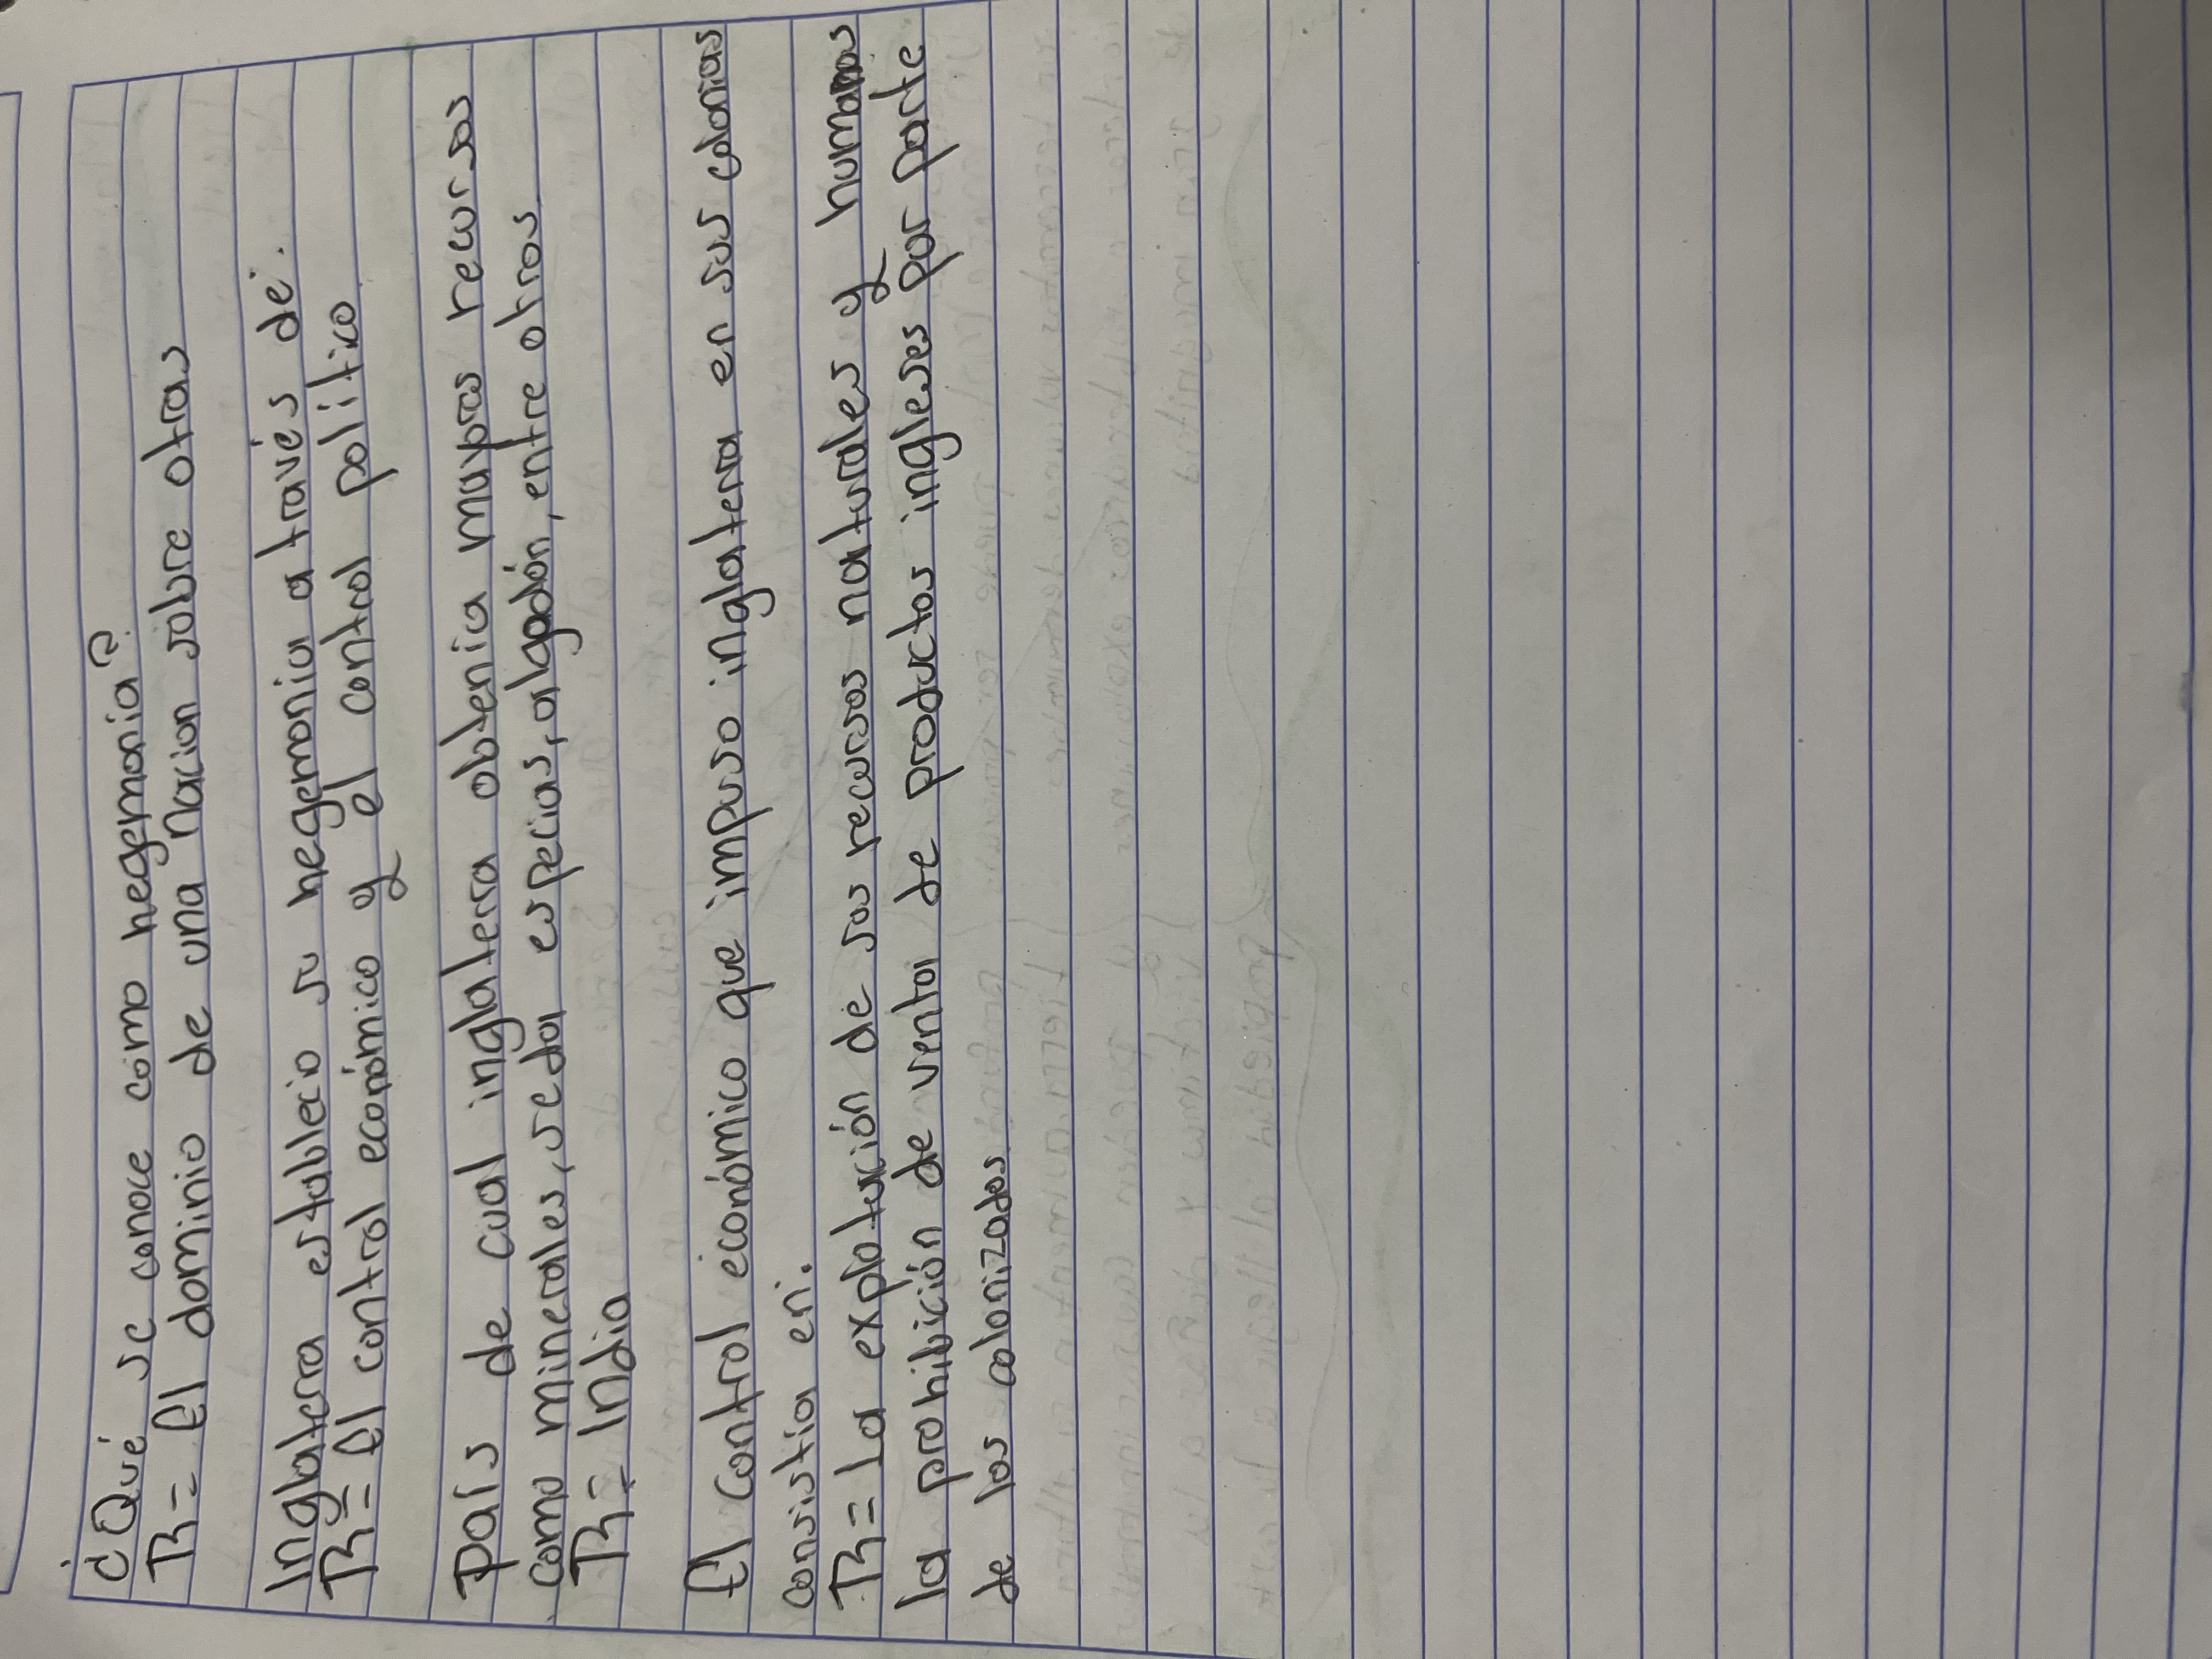 ¿Qué se conoce como hegemonía?
R= El dominio de una Nacion sobre otras
Inglaterra establecio su hegemonia a través de:
R= El control económico y el control político
País de cual inglaterra obtenia muypos recursos
como minerales, seda, especias, algodón, entre otros
R= India
El control económico que impuso inglaterra en sus colonias
consistia en.
R= La explotación de sos recursos naturales y humanos
la prohibición de venta de productos ingleses por parte
de los colonizados